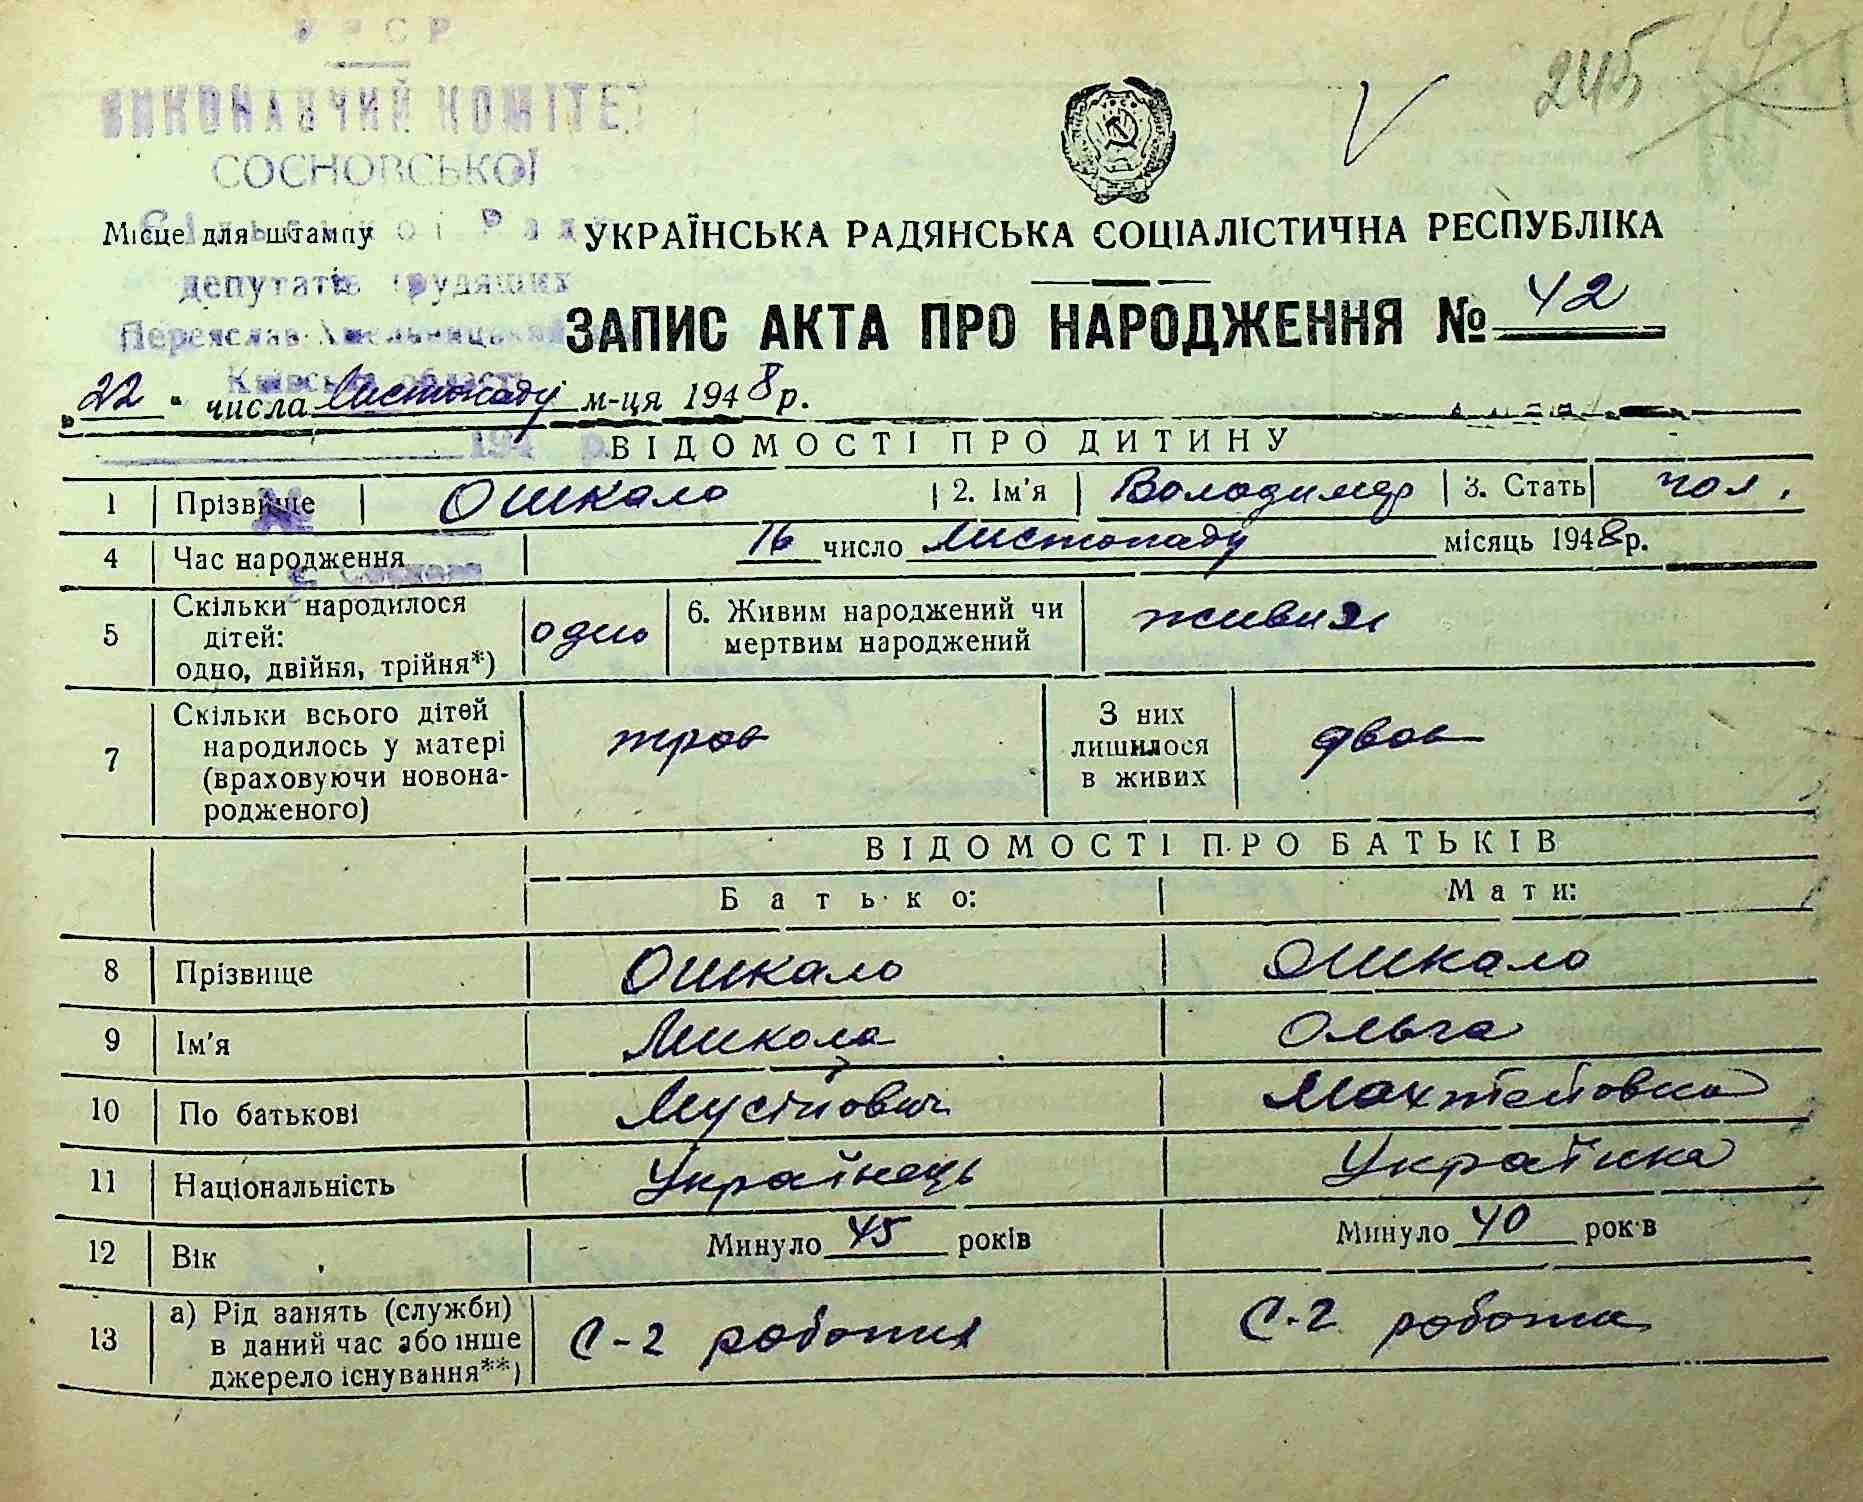 УРСР
ВИКОНАВЧИЙ КОМІТЕТ
СОСНОВСЬКОЇ
Сільської Ради
депутатів трудящих
Переяслав-Хмельницький
Київської області
194 р.
№
с. Соснова
245
Місце для штампу
УКРАЇНСЬКА РАДЯНСЬКА СОЦІАЛІСТИЧНА РЕСПУБЛІКА
ЗАПИС АКТА ПРО НАРОДЖЕННЯ № 42
„22“ числа Листопаду м-ця 1948 р.
ВІДОМОСТІ ПРО ДИТИНУ
1 Прізвище Ошкало 2. Ім'я Володимер 3. Стать чол.
4 Час народження 16 число Листопаду місяць 1948 р.
5 Скільки народилося дітей: одно, двійня, трійня*) одно 6. Живим народжений чи мертвим народжений живим
7 Скільки всього дітей народилось у матері (враховуючи новонародженого) троє З них лишилося в живих двоє
ВІДОМОСТІ ПРО БАТЬКІВ
Батько: Мати:
8 Прізвище Ошкало Ошкало
9 Ім'я Микола Ольга
10 По батькові Мусійович
11 Національність Українець Українка
12 Вік Минуло 45 років Минуло 40 років
13 а) Рід занять (служби) в даний час або інше джерело існування**) С-г роботник С-г робота